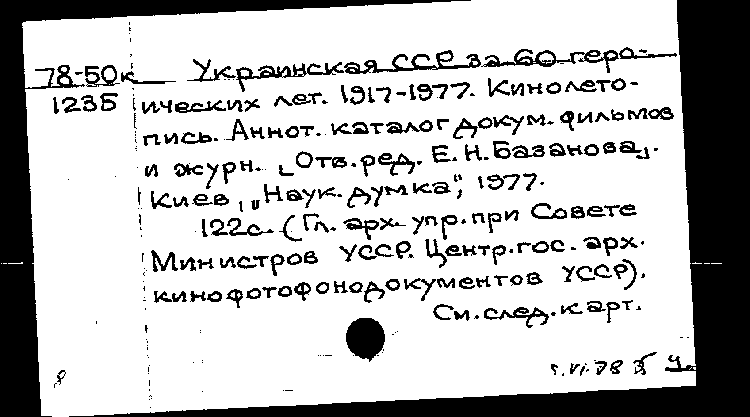 78-50к Украинская ССР за 60 геро-
1235 ических лет. 1917-1977. Кинолето-
пись. Аннот. каталог докум. фильмов
и журн. [Отв. ред. Е.Н. Базанова].
Киев, "Наук. думка", 1977.
122с. (Гл. арх. упр. при Совете
Министров УССР. Центр. гос. арх.
кинофотофонодокументов УССР).
См. след. карт.
8
VI-78